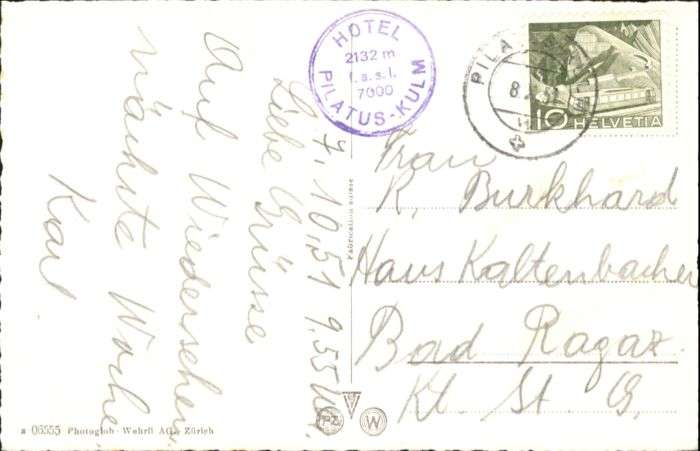 7. 10. 51 9.55 Uhr.
Liebe Grüsse
Auf Wiedersehen
nächste Woche
Karl.
HOTEL
2132 m
f.a.s.l.
7000
PILATUS-KULM
PILA
8.
10
HELVETIA
Frau
R. Burkhard
Haus Kaltenbacher
Bad Ragaz
Kt. St. G.
Fabrication suisse
PZ
W
a 06555 Photoglob-Wehrli AG., Zürich